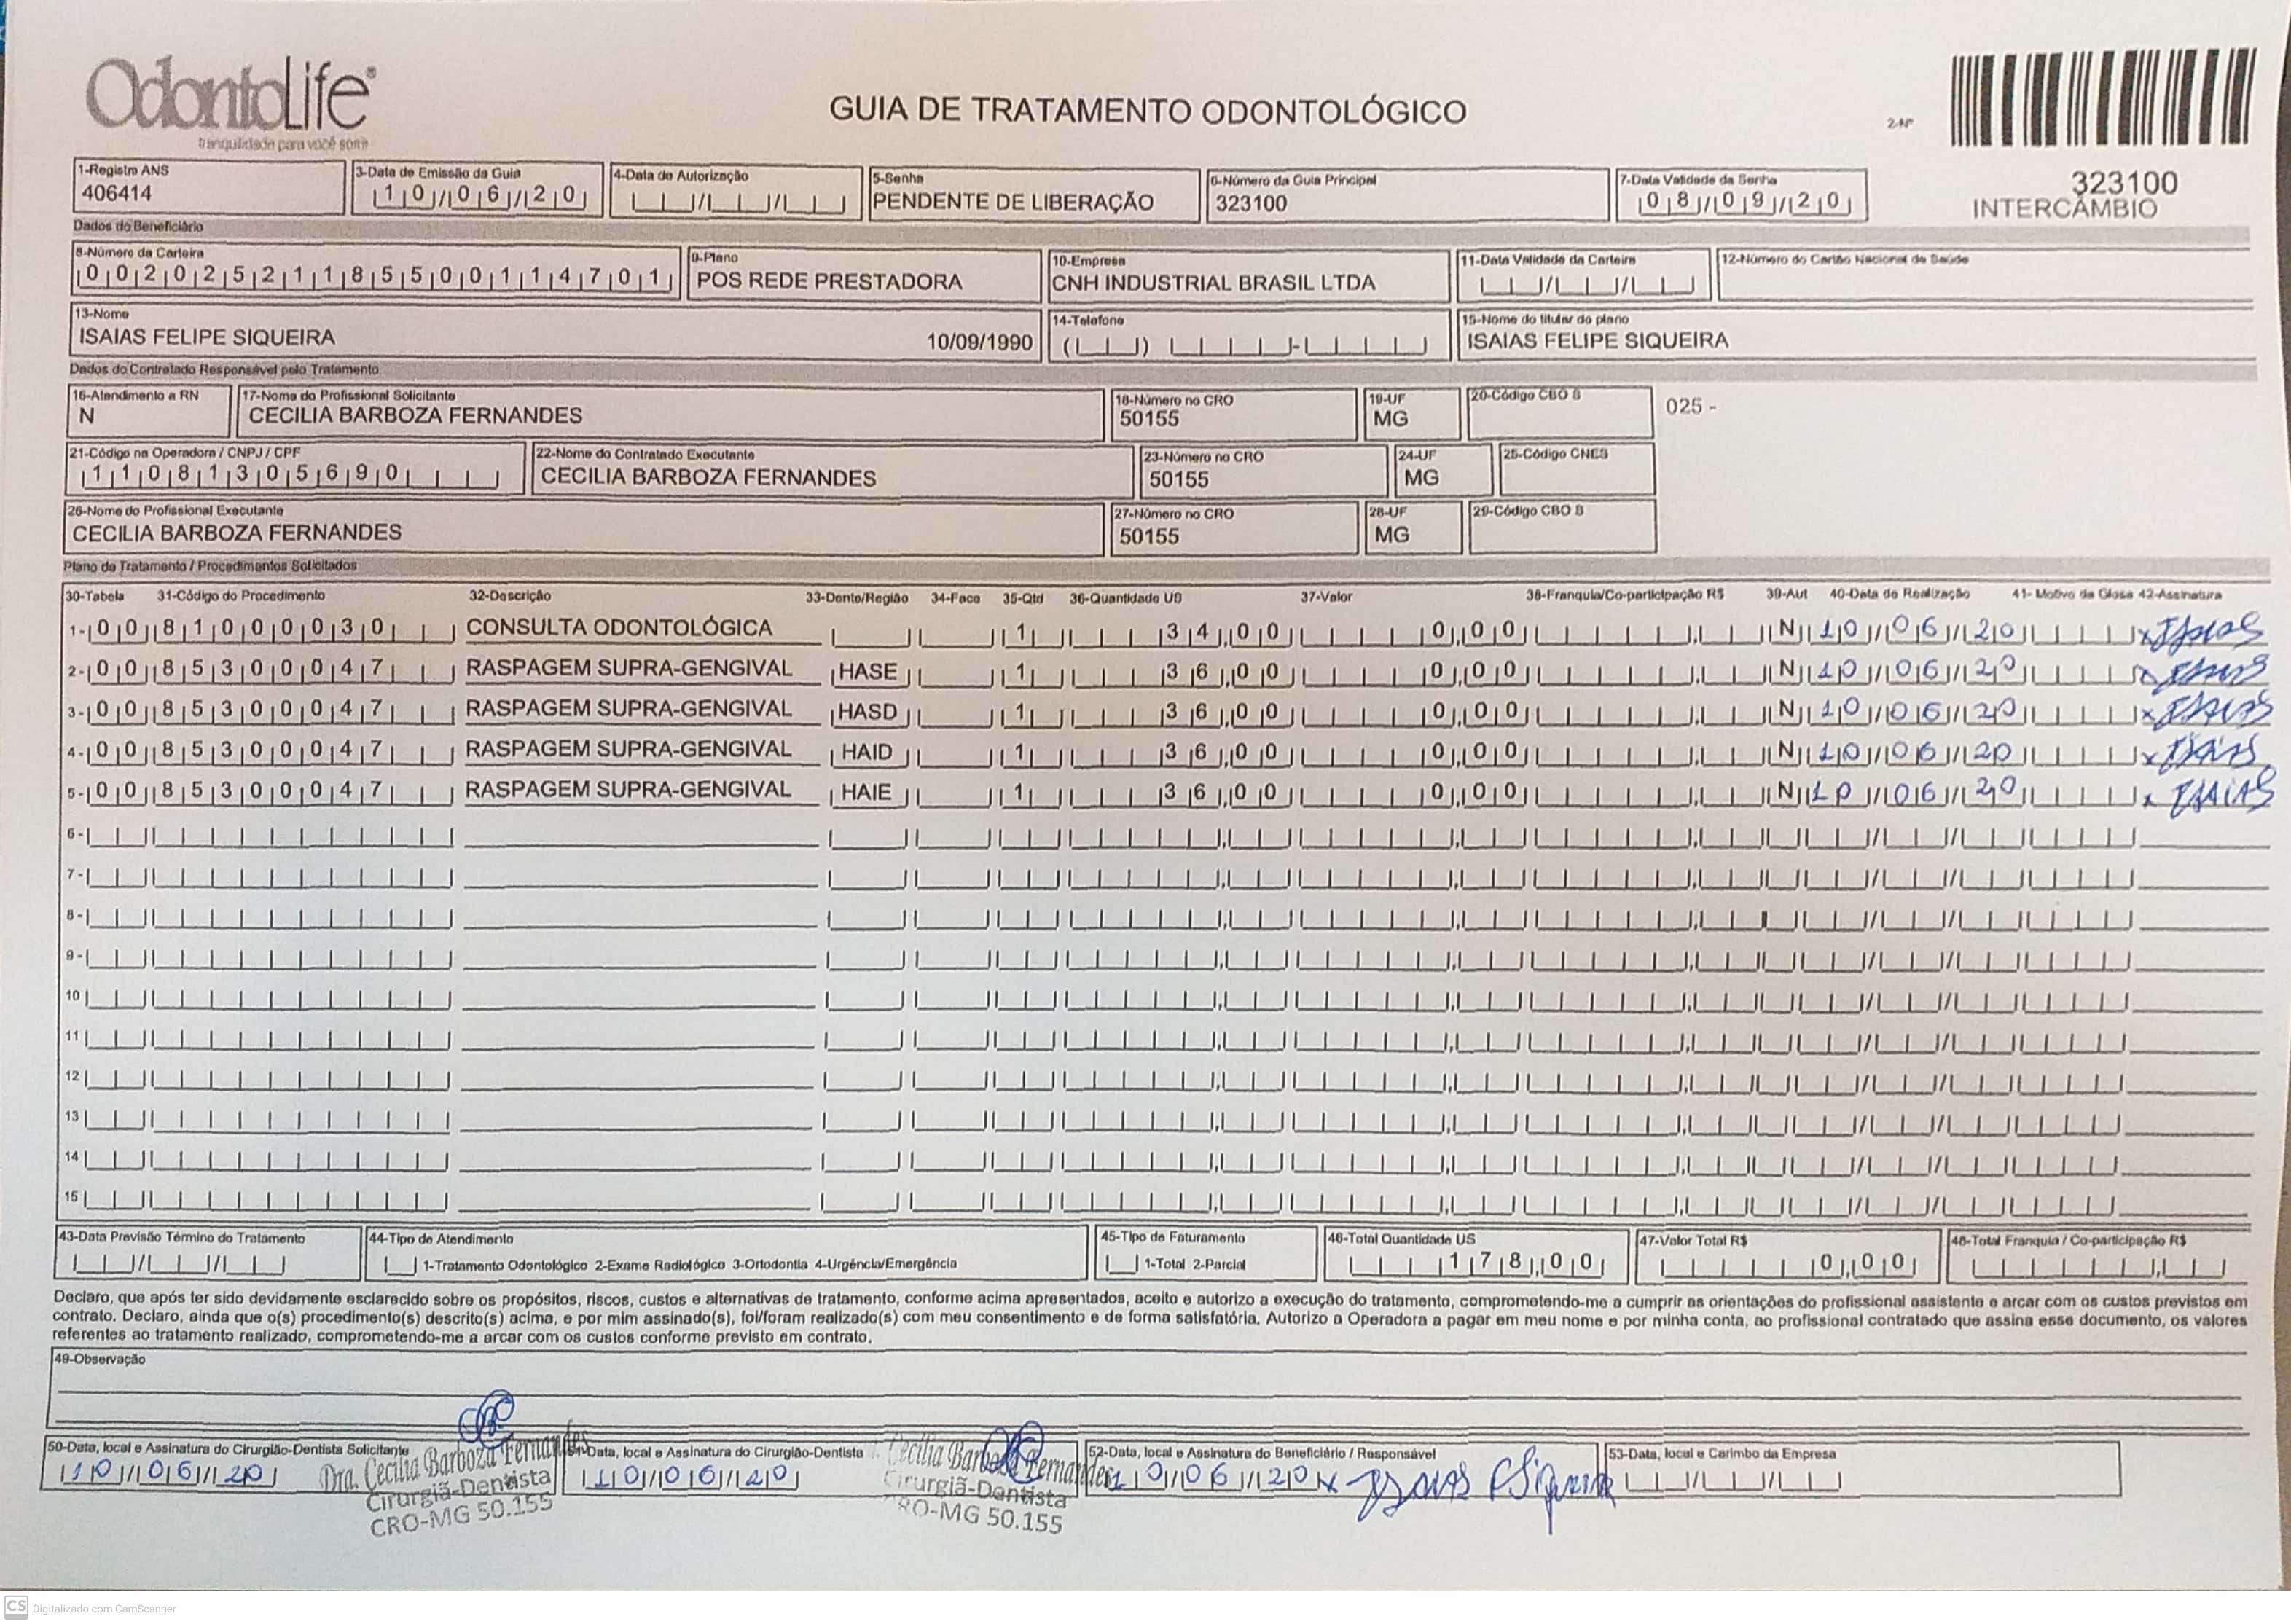 OdontoLife®
tranquilidade para você sorrir
GUIA DE TRATAMENTO ODONTOLÓGICO
2-Nº
323100
INTERCÂMBIO
1-Registro ANS
406414
3-Data de Emissão da Guia
10/06/20
4-Data de Autorização
5-Senha
PENDENTE DE LIBERAÇÃO
6-Número da Guia Principal
323100
7-Data Validade da Senha
08/09/20
Dados do Beneficiário
8-Número da Carteira
00202521185500114701
9-Plano
POS REDE PRESTADORA
10-Empresa
CNH INDUSTRIAL BRASIL LTDA
11-Data Validade da Carteira
12-Número do Cartão Nacional de Saúde
13-Nome
ISAIAS FELIPE SIQUEIRA 10/09/1990
14-Telefone
15-Nome do titular do plano
ISAIAS FELIPE SIQUEIRA
Dados do Contratado Responsável pelo Tratamento
16-Atendimento a RN
N
17-Nome do Profissional Solicitante
CECILIA BARBOZA FERNANDES
18-Número no CRO
50155
19-UF
MG
20-Código CBO S
025 -
21-Código na Operadora / CNPJ / CPF
11081305690
22-Nome do Contratado Executante
CECILIA BARBOZA FERNANDES
23-Número no CRO
50155
24-UF
MG
25-Código CNES
26-Nome do Profissional Executante
CECILIA BARBOZA FERNANDES
27-Número no CRO
50155
28-UF
MG
29-Código CBO S
Plano de Tratamento / Procedimentos Solicitados
30-Tabela 31-Código do Procedimento 32-Descrição 33-Dente/Região 34-Face 35-Qtd 36-Quantidade US 37-Valor 38-Franquia/Co-participação R$ 39-Aut 40-Data de Realização 41- Motivo da Glosa 42-Assinatura
1- 00 81000030 CONSULTA ODONTOLÓGICA 1 34,00 0,00 N 10/06/20 x Isaias
2- 00 85300047 RASPAGEM SUPRA-GENGIVAL HASE 1 36,00 0,00 N 10/06/20 x Isaias
3- 00 85300047 RASPAGEM SUPRA-GENGIVAL HASD 1 36,00 0,00 N 10/06/20 x Isaias
4- 00 85300047 RASPAGEM SUPRA-GENGIVAL HAID 1 36,00 0,00 N 10/06/20 x Isaias
5- 00 85300047 RASPAGEM SUPRA-GENGIVAL HAIE 1 36,00 0,00 N 10/06/20 x Isaias
6-
7-
8-
9-
10
11
12
13
14
15
43-Data Previsão Término do Tratamento
44-Tipo de Atendimento
1-Tratamento Odontológico 2-Exame Radiológico 3-Ortodontia 4-Urgência/Emergência
45-Tipo de Faturamento
1-Total 2-Parcial
46-Total Quantidade US
178,00
47-Valor Total R$
0,00
48-Total Franquia / Co-participação R$
Declaro, que após ter sido devidamente esclarecido sobre os propósitos, riscos, custos e alternativas de tratamento, conforme acima apresentados, aceito e autorizo a execução do tratamento, comprometendo-me a cumprir as orientações do profissional assistente e arcar com os custos previstos em
contrato. Declaro, ainda que o(s) procedimento(s) descrito(s) acima, e por mim assinado(s), foi/foram realizado(s) com meu consentimento e de forma satisfatória. Autorizo a Operadora a pagar em meu nome e por minha conta, ao profissional contratado que assina esse documento, os valores
referentes ao tratamento realizado, comprometendo-me a arcar com os custos conforme previsto em contrato.
49-Observação
50-Data, local e Assinatura do Cirurgião-Dentista Solicitante
10/06/20
Dra. Cecília Barboza Fernandes
Cirurgiã-Dentista
CRO-MG 50.155
Data, local e Assinatura do Cirurgião-Dentista
10/06/20
Cecília Barboza Fernandes
Cirurgiã-Dentista
CRO-MG 50.155
52-Data, local e Assinatura do Beneficiário / Responsável
10/06/20 x Isaias FSiqueira
53-Data, local e Carimbo da Empresa
CS Digitalizado com CamScanner